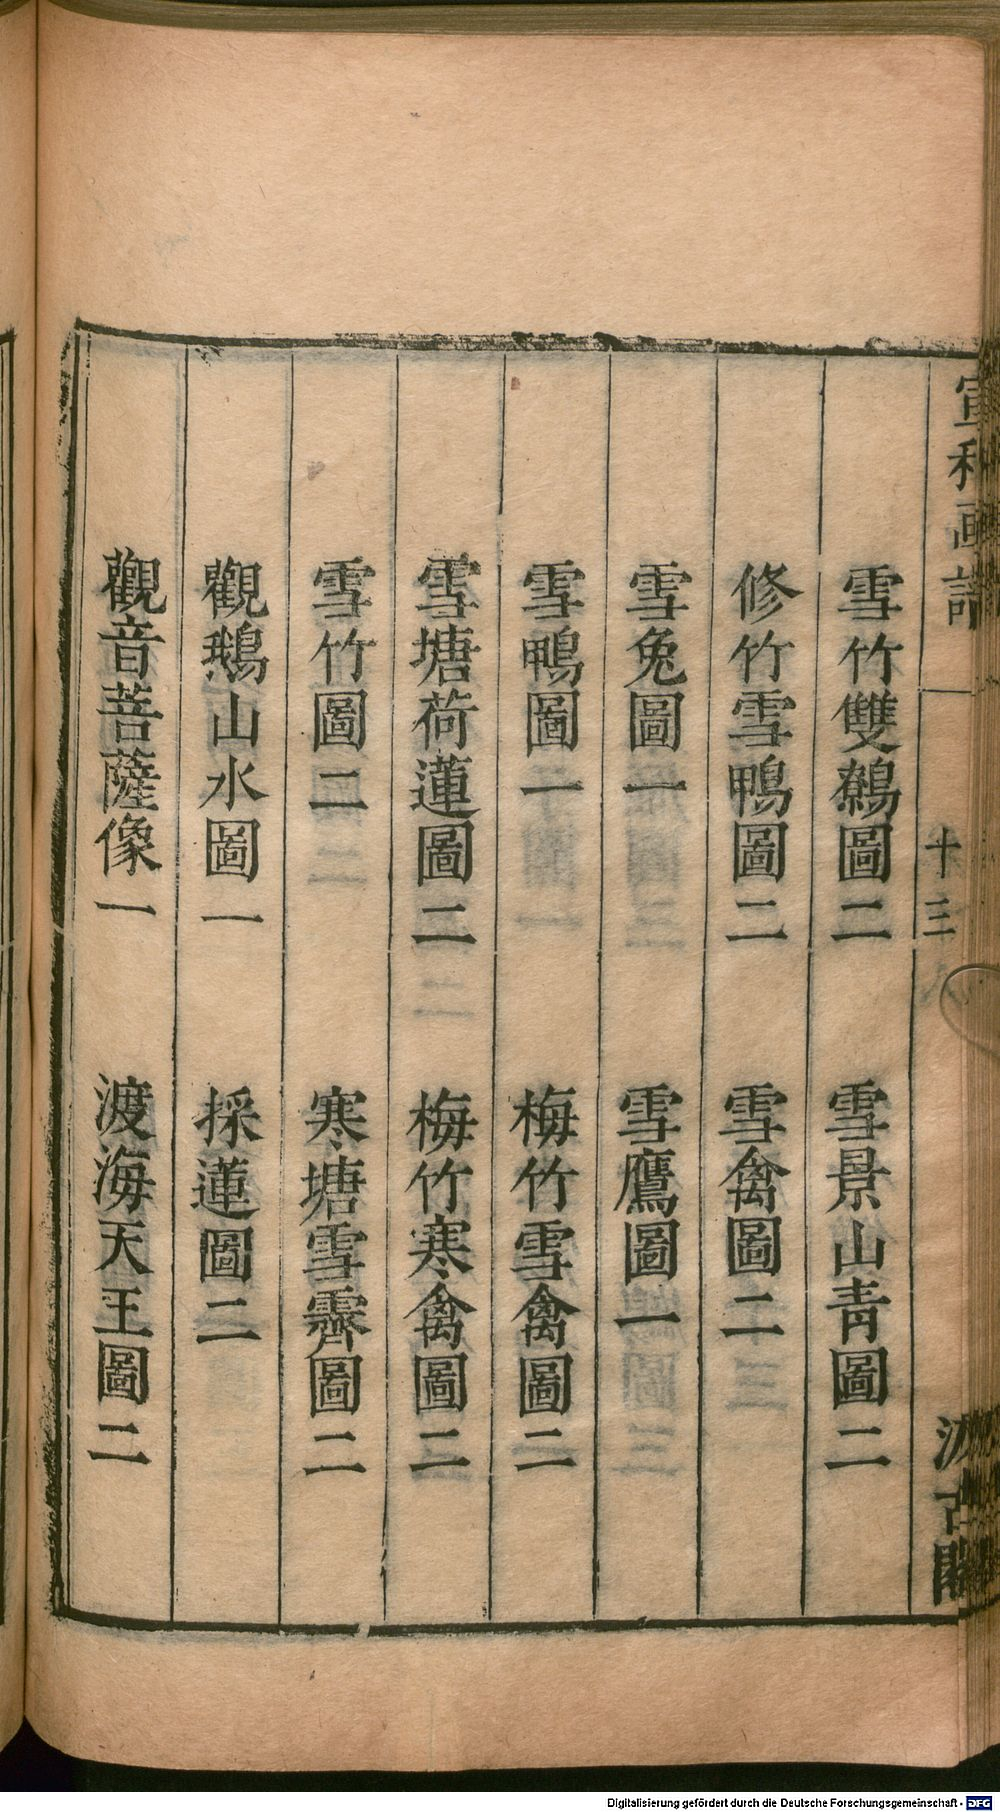 宣和画譜
十三
汲古閣
雪竹雙鷯圖二　雪景山青圖二
修竹雪鴨圖二　雪禽圖二
雪兔圖一　雪鷹圖一
雪鴨圖一　梅竹雪禽圖二
雪塘荷蓮圖二　梅竹寒禽圖二
雪竹圖二　寒塘雪霽圖二
觀鵝山水圖一　採蓮圖二
觀音菩薩像一　渡海天王圖二
Digitalisierung gefördert durch die Deutsche Forschungsgemeinschaft - DFG